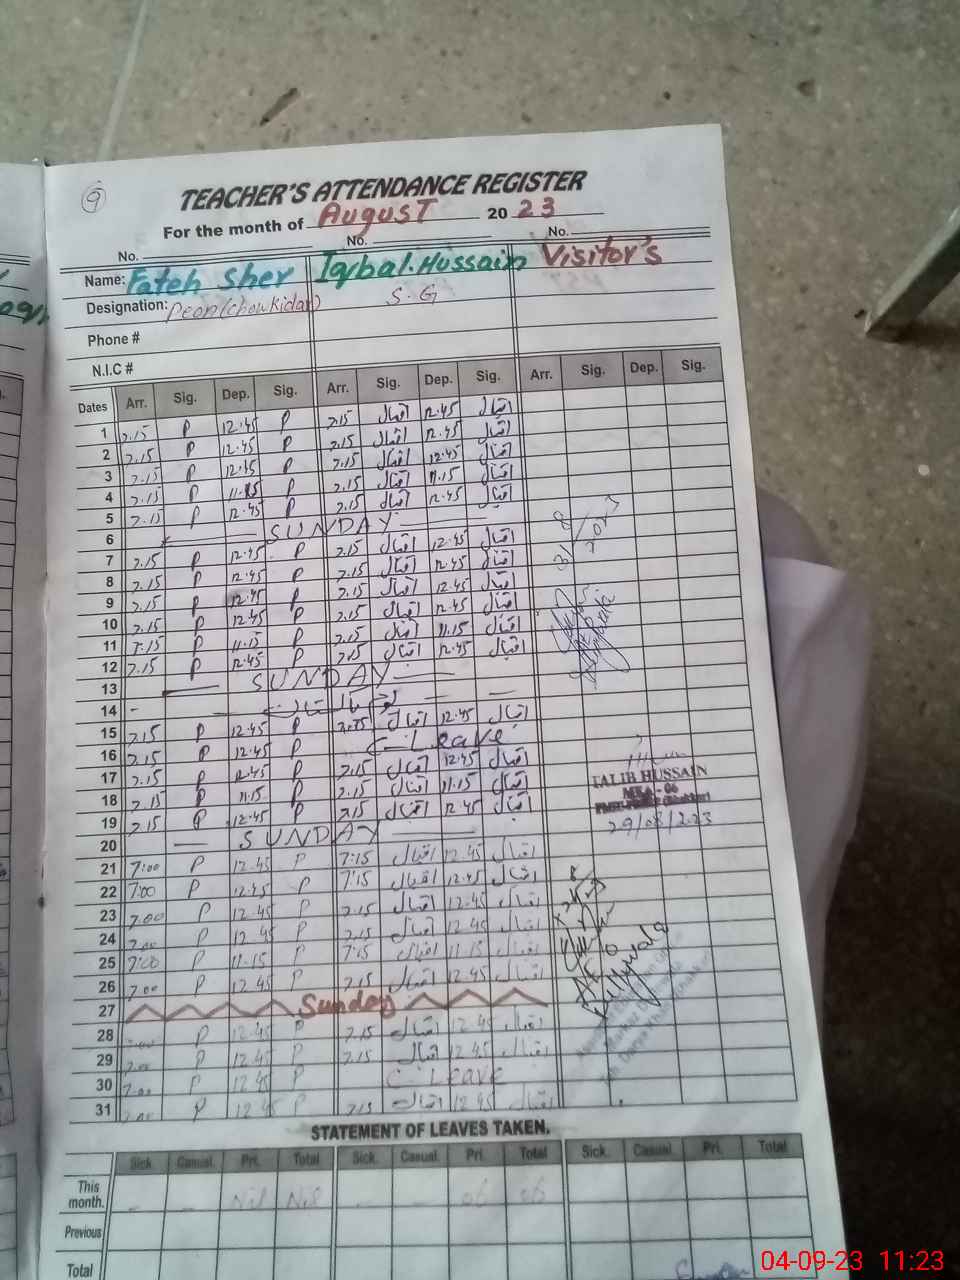 9
TEACHER'S ATTENDANCE REGISTER
For the month of August 2023
No. No. No.
Name: Fateh Sher Iqbal.Hussain Visitor's
Designation: Peon(chowkidar) S.G
Phone #
N.I.C #
Dates Arr. Sig. Dep. Sig. Arr. Sig. Dep. Sig. Arr. Sig. Dep. Sig.
1 7.15 P 12.45 P 7.15 اقبال 12.45 اقبال
2 7.15 P 12.45 P 7.15 اقبال 12.45 اقبال
3 7.15 P 12.45 P 7.15 اقبال 12.45 اقبال
4 7.15 P 11.15 P 7.15 اقبال 11.15 اقبال
5 7.15 P 12.45 P 7.15 اقبال 12.45 اقبال
6 SUNDAY
7 7.15 P 12.45 P 7.15 اقبال 12.45 اقبال
8 7.15 P 12.45 P 7.15 اقبال 12.45 اقبال
9 7.15 P 12.45 P 7.15 اقبال 12.45 اقبال
10 7.15 P 12.45 P 7.15 اقبال 12.45 اقبال
11 7.15 P 11.15 P 7.15 اقبال 11.15 اقبال
12 7.15 P 12.45 P 7.15 اقبال 12.45 اقبال
13 SUNDAY
14
15 7.15 P 12.45 P 7.15 اقبال 12.45 اقبال
16 7.15 P 12.45 P C-Leave
17 7.15 P 12.45 P 7.15 اقبال 12.45 اقبال
18 7.15 P 11.15 P 7.15 اقبال 11.15 اقبال
19 7.15 P 12.45 P 7.15 اقبال 12.45 اقبال
20 SUNDAY
21 7:00 P 12.45 P 7:15 اقبال 12.45 اقبال
22 7:00 P 12.45 P 7:15 اقبال 12.45 اقبال
23 7.00 P 12.45 P 7.15 اقبال 12.45 اقبال
24 7.00 P 12.45 P 7.15 اقبال 12.45 اقبال
25 7:00 P 11.15 P 7:15 اقبال 11.15 اقبال
26 7.00 P 12.45 P 7.15 اقبال 12.45 اقبال
27 Sunday
28 7.00 P 12.45 P 7.15 اقبال 12.45 اقبال
29 7.00 P 12.45 P 7.15 اقبال 12.45 اقبال
30 7.00 P 12.45 P C-Leave
31 7.00 P 12.45 P 7.15 اقبال 12.45 اقبال
31/8/2023
TALIB HUSSAIN
MEA - 06
29/08/2023
AEO
STATEMENT OF LEAVES TAKEN.
Sick. Casual. Pri. Total Sick. Casual. Pri. Total Sick. Casual. Pri. Total
This month. - - Nil Nil - - 06 06
Previous
Total
04-09-23 11:23